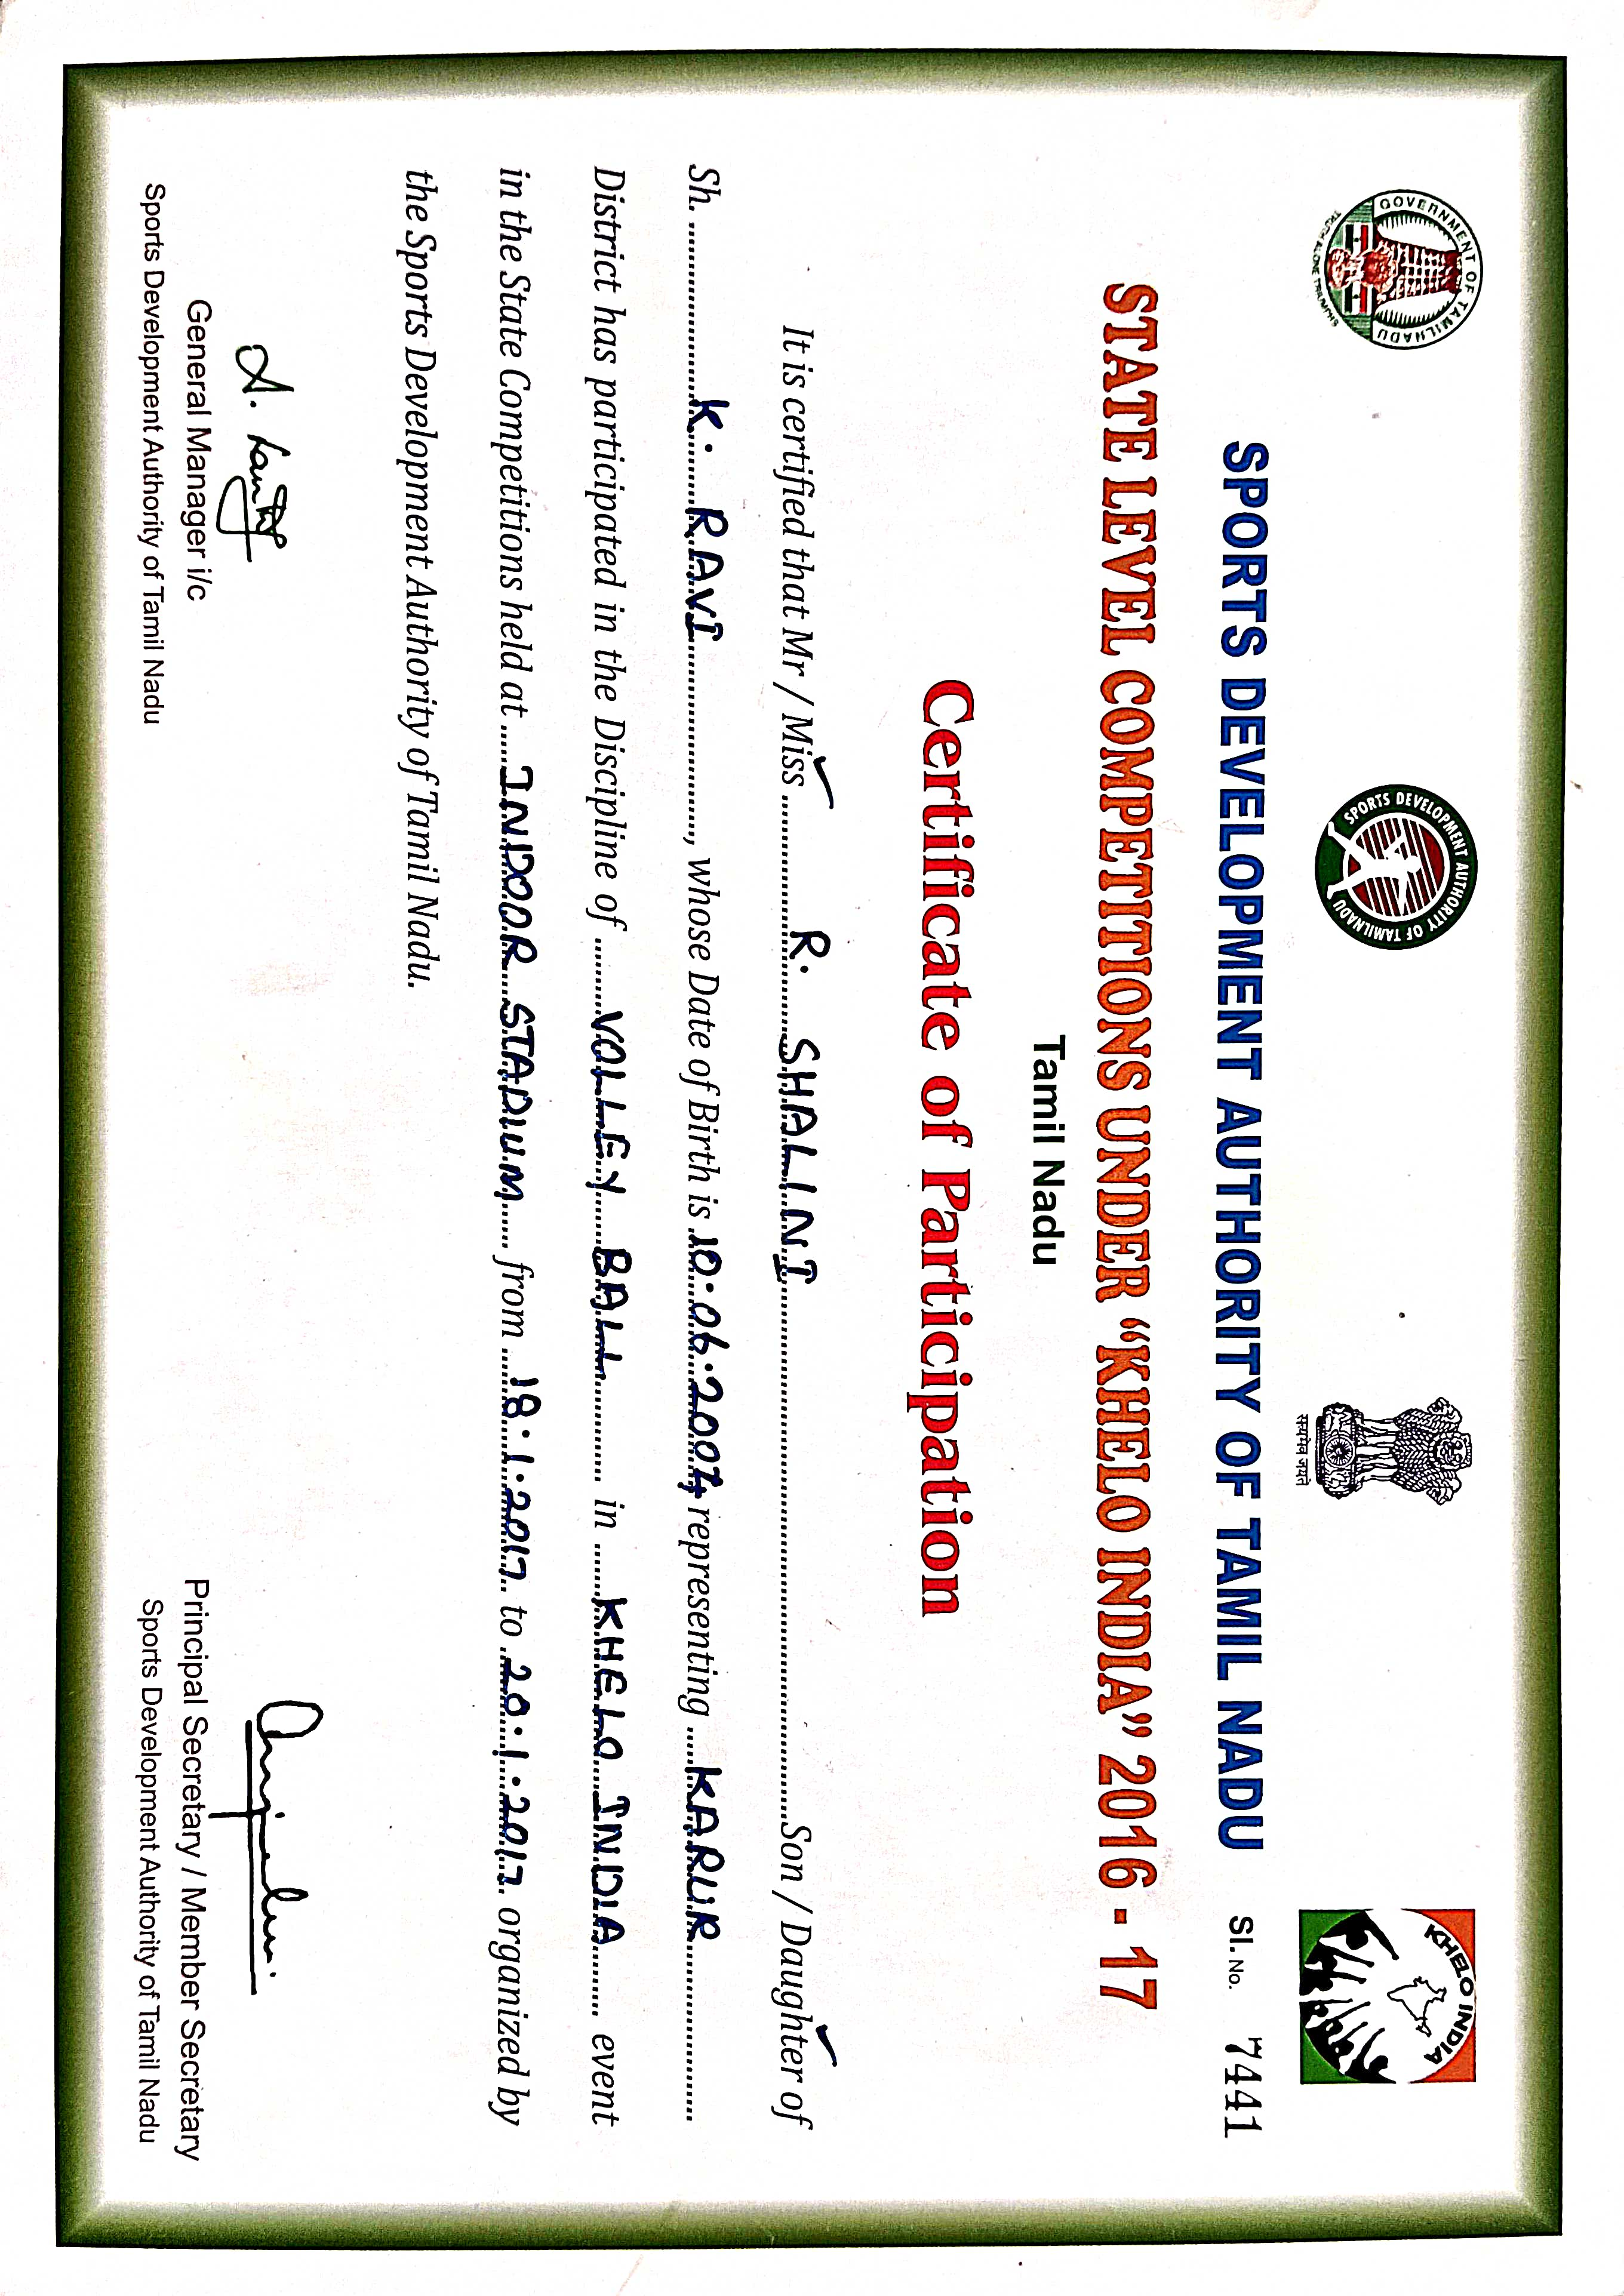 GOVERNMENT OF TAMILNADU
TRUTH ALONE TRIUMPHS
SPORTS DEVELOPMENT AUTHORITY OF TAMILNADU
सत्यमेव जयते
KHELO INDIA
SPORTS DEVELOPMENT AUTHORITY OF TAMIL NADU Sl. No. 7441
STATE LEVEL COMPETITIONS UNDER “KHELO INDIA” 2016 - 17
Tamil Nadu
Certificate of Participation
It is certified that Mr / Miss ✓ R. SHALINI Son / Daughter ✓ of
Sh. K. RAVI, whose Date of Birth is 10.06.2007, representing KARUR
District has participated in the Discipline of VOLLEY BALL in KHELO INDIA event
in the State Competitions held at INDOOR STADIUM from 18.1.2017 to 20.1.2017 organized by
the Sports Development Authority of Tamil Nadu.
General Manager i/c
Sports Development Authority of Tamil Nadu
Principal Secretary / Member Secretary
Sports Development Authority of Tamil Nadu